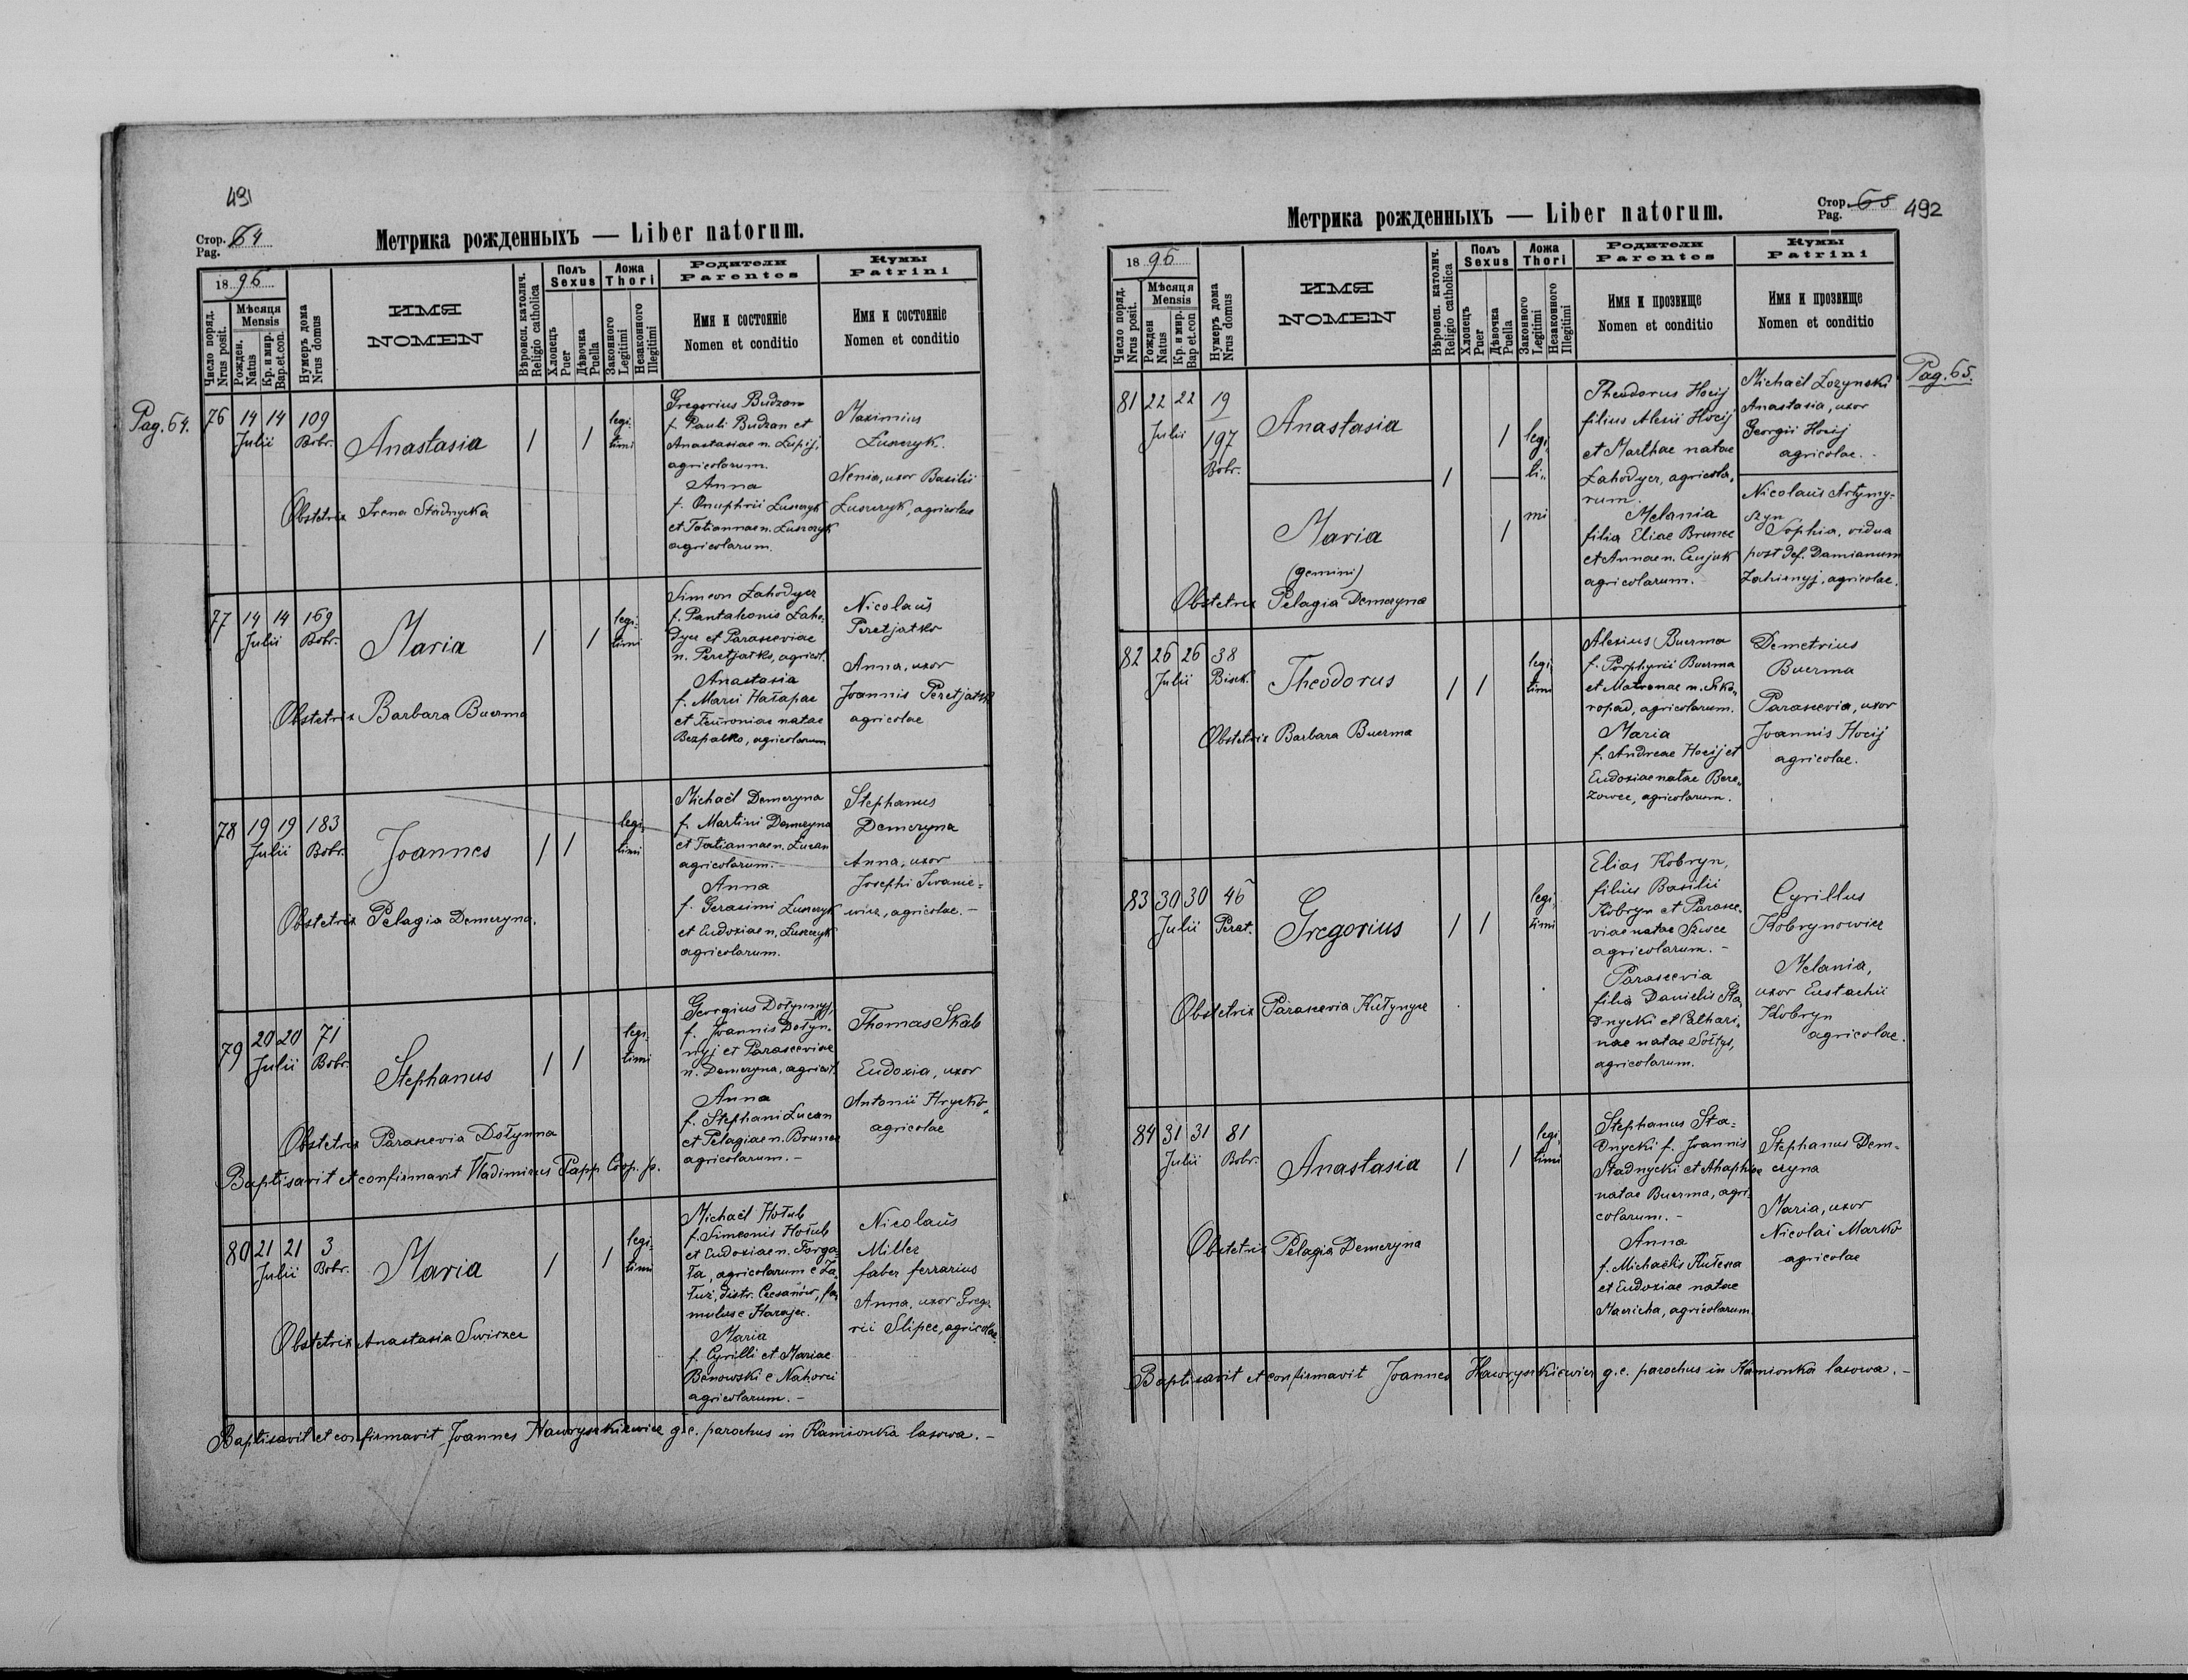 491
Стор. Pag. 64
Метрика рожденныхъ — Liber natorum.
1896
Число поряд. Nrus posit.
Мѣсяця Mensis
Рожден. Natus
Кр. и мир. Bap.et.con.
Нумеръ дома Nrus domus
ИМЯ
NOMEN
Вѣроисп. католич. Religio catholica
Полъ Sexus
Хлопецъ Puer
Дѣвочка Puella
Ложа Thori
Законного Legitimi
Незаконного Illegitimi
Родители
Parentes
Имя и состоянie
Nomen et conditio
Кумы
Patrini
Имя и состоянie
Nomen et conditio
Pag. 64.
76 14 14 109
Julii Bobr.
Anastasia
1 1
legi-
timi
Gregorius Budzan
f. Pauli Budzan et
Anastasiae n. Lupij,
agricolarum.
Anna
f. Onuphrii Luszczyk
et Tatiannae n. Luszczyk
agricolarum.
Maximius
Luszczyk.
Xenia, uxor Basilii
Luszczyk, agricolae
Obstetrix Irena Stadnycka
77 14 14 169
Julii Bobr.
Maria
1 1
legi-
timi
Simeon Zahodycz
f. Pantaleonis Zaho-
dycz et Parasceviae
n. Peretjatko, agricol.
Anastasia
f. Marci Hałapac
et Feuroniae natae
Bezpałko, agricolarum
Nicolaus
Peretjatko
Anna, uxor
Joannis Peretjatko
agricolae
Obstetrix Barbara Buerma
78 19 19 183
Julii Bobr.
Joannes
1 1
legi-
timi
Michaël Demczyna
f. Martini Demczyna
et Tatiannae n. Lucan
agricolarum.-
Anna
f. Gerasimi Luszczyk
et Eudoxiae n. Luszczyk
agricolarum.
Stephanus
Demczyna
Anna, uxor
Josephi Iwanie-
wicz, agricolae.-
Obstetrix Pelagia Demczyna.
79 20 20 71
Julii Bobr.
Stephanus
1 1
legi-
timi
Georgius Dołynnyj,
f. Joannis Dołyn-
nyj et Parasceviae
n. Demczyna, agricol.
Anna
f. Stephani Lucan
et Pelagiae n. Brunec
agricolarum.-
Thomas Skab
Eudoxia, uxor
Antonii Hrycko,
agricolae
Obstetrix Parascevia Dołynna
Baptisavit et confirmavit Vladimirus Papp Coop. p.
80 21 21 3
Julii Bobr.
Maria
1 1
legi-
timi
Michaël Hołub
f. Simeonis Hołub
et Eudoxiae n. Forga-
ła, agricolarum e Za-
łuż, distr. Ciesanów, fa-
mulus e Harajec.
Maria
f. Cyrilli et Mariae
Banowski e Nahorci
agricolarum.-
Nicolaus
Miller
faber ferrarius
Anna, uxor Grego-
rii Slipec, agricolae.
Obstetrix Anastasia Swirzec
Baptisavit et confirmavit Joannes Hawryszkiewicz g.c. parochus in Kamionka lasowa.-
Метрика рожденныхъ — Liber natorum.
Стор. Pag. 65 492
1896
Число поряд. Nrus posit.
Мѣсяця Mensis
Рожден Natus
Кр. и мир. Bap et.con
Нумеръ дома Nrus domus
ИМЯ
NOMEN
Вѣроисп. католич. Religio catholica
Полъ Sexus
Хлопецъ Puer
Дѣвочка Puella
Ложа Thori
Законного Legitimi
Незаконного Illegitimi
Родители
Parentes
Имя и прозвище
Nomen et conditio
Кумы
Patrini
Имя и прозвище
Nomen et conditio
Pag. 65.
81 22 22 19
Julii 197
Bobr.
Anastasia
Maria
(gemini)
1 1 1
legi-
ti-
mi
Theodorus Hocij
filius Alexii Hocij
et Marthae natae
Zahodycz, agricola-
rum.
Melania
filia Eliae Brunec
et Annae n. Czujuk
agricolarum.-
Michaël Łozynski
Anastasia, uxor
Georgii Hocij
agricolae.-
Nicolaus Artymy-
szyn
Sophia, vidua
post def. Damianum
Zahirnyj, agricolae.
Obstetrix Pelagia Demczyna
82 26 26 38
Julii Bisek.
Theodorus
1 1
legi-
timi
Alexius Buerma
f. Porphyrii Buerma
et Matronae n. Sko-
ropad, agricolarum.
Maria
f. Andreae Hocij et
Eudoxiae natae Bere-
zowec, agricolarum.
Demetrius
Buerma
Parascevia, uxor
Joannis Hocij
agricolae.
Obstetrix Barbara Buerma
83 30 30 46
Julii Perat.
Gregorius
1 1
legi-
timi
Elias Kobryn,
filius Basilii
Kobryn et Parasce-
viae natae Szwec
agricolarum.-
Parascevia
filia Danielis Sta-
dnycki et Cathari-
nae natae Sołtys,
agricolarum.
Cyrillus
Kobrynowicz
Melania,
uxor Eustachii
Kobryn
agricolae.
Obstetrix Parascevia Kułynycz
84 31 31 81
Julii Bobr.
Anastasia
1 1
legi-
timi
Stephanus Sta-
dnycki f. Joannis
Stadnycki et Ahaphiae
natae Buerma, agri-
colarum.-
Anna
f. Michaëlis Kułesza
et Eudoxiae natae
Macricha, agricolarum.
Stephanus Dem-
czyna
Maria, uxor
Nicolai Marko
agricolae
Obstetrix Pelagia Demczyna
Baptisavit et confirmavit Joannes Hawryszkiewicz g.c. parochus in Kamionka lasowa.-